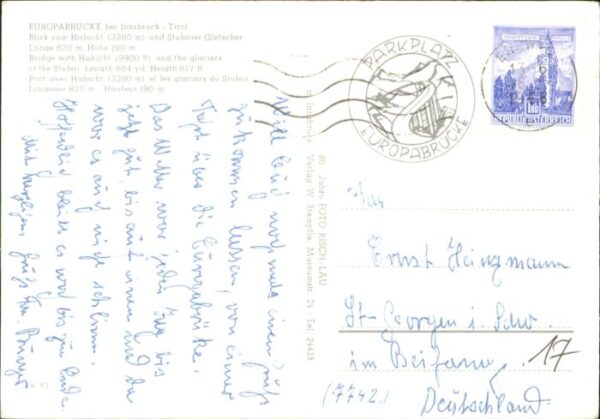 EUROPABRÜCKE bei Innsbruck - Tirol
Blick zum Habicht (3280 m) und Stubaier Gletscher
Länge 820 m, Höhe 190 m
Bridge with Habicht (9900 ft) and the glaciers
of the Stubai. Length 884 yd. Heigth 617 ft
Pont avec Habicht (3280 m) et les glaciers du Stubai
Longueur 820 m - Hauteur 190 m
PARKPLATZ
EUROPABRÜCKE
REPUBLIK ÖSTERREICH
Will Euch noch mals einen Gruß
zukommen lassen, von einer
über die Europabrücke.
Das Wetter war jeden Tag bis
jetzt gut, bis auf einen und da
war es auch nicht schlimm.
Hoffentlich bleibt es noch bis zum Ende.
Mit herzlichem Gruß
80 Jahre FOTO RISCH-LAU
Innsbruck Verlag W. Stempfle Museumstr. 24 - Tel. 24433
Ernst Heinzmann
St-Georgen i. Schw.
im
17
(7742)
Deutschland